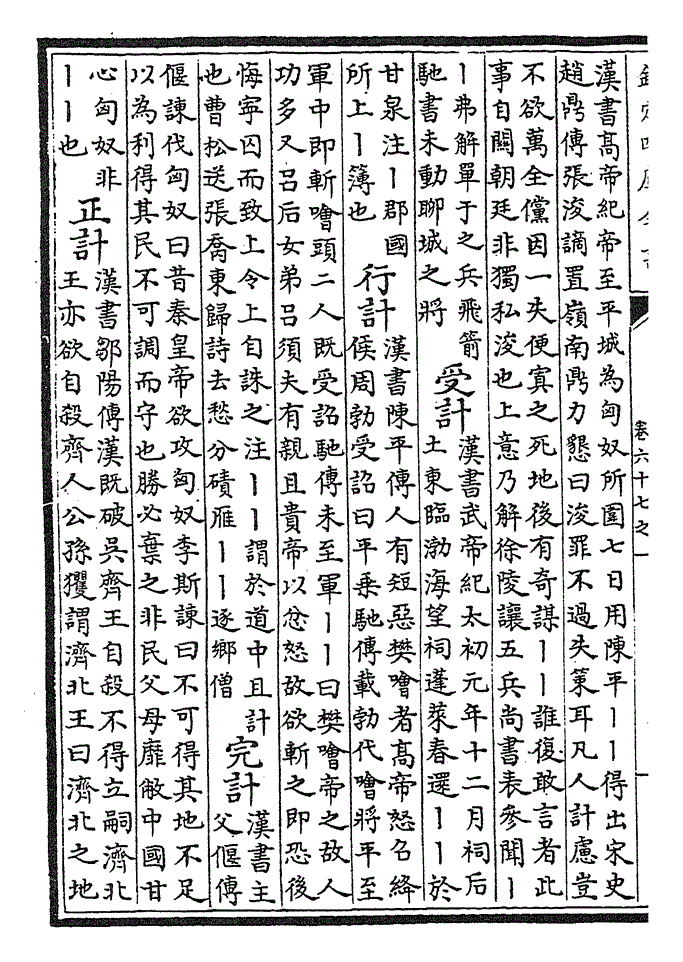 卷六十七之一
漢書高帝紀帝至平城為匈奴所圍七日用陳平丨丨得出宋史
趙鼎傳張浚謫置嶺南鼎力懇曰浚罪不過失策耳凡人計慮豈
不欲萬全儻因一失便寘之死地後有奇謀丨丨誰復敢言者此
事自關朝廷非獨私浚也上意乃解徐陵讓五兵尚書表參聞丨
丨弗解單于之兵飛箭
馳書未動聊城之將
受計
漢書武帝紀太初元年十二月祠后
土東臨渤海望祠蓬萊春還丨丨於
甘泉注丨郡國
所上丨簿也
行計
漢書陳平傳人有短惡樊噲者高帝怒召絳
侯周勃受詔曰平乗馳傳載勃代噲將平至
軍中即斬噲頭二人既受詔馳傳未至軍丨丨曰樊噲帝之故人
功多又呂后女弟呂須夫有親且貴帝以忿怒故欲斬之即恐後
悔寧囚而致上令上自誅之注丨丨謂於道中且計
也曹松送張喬東歸詩去愁分磧雁丨丨逐鄉僧
完計
漢書主
父偃傳
偃諫伐匈奴曰昔秦皇帝欲攻匈奴李斯諫曰不可得其地不足
以為利得其民不可調而守也勝必棄之非民父母靡敝中國甘
心匈奴非
丨丨也
正計
漢書鄒陽傳漢既破吳齊王自殺不得立嗣濟北
王亦欲自殺齊人公孫玃謂濟北王曰濟北之地